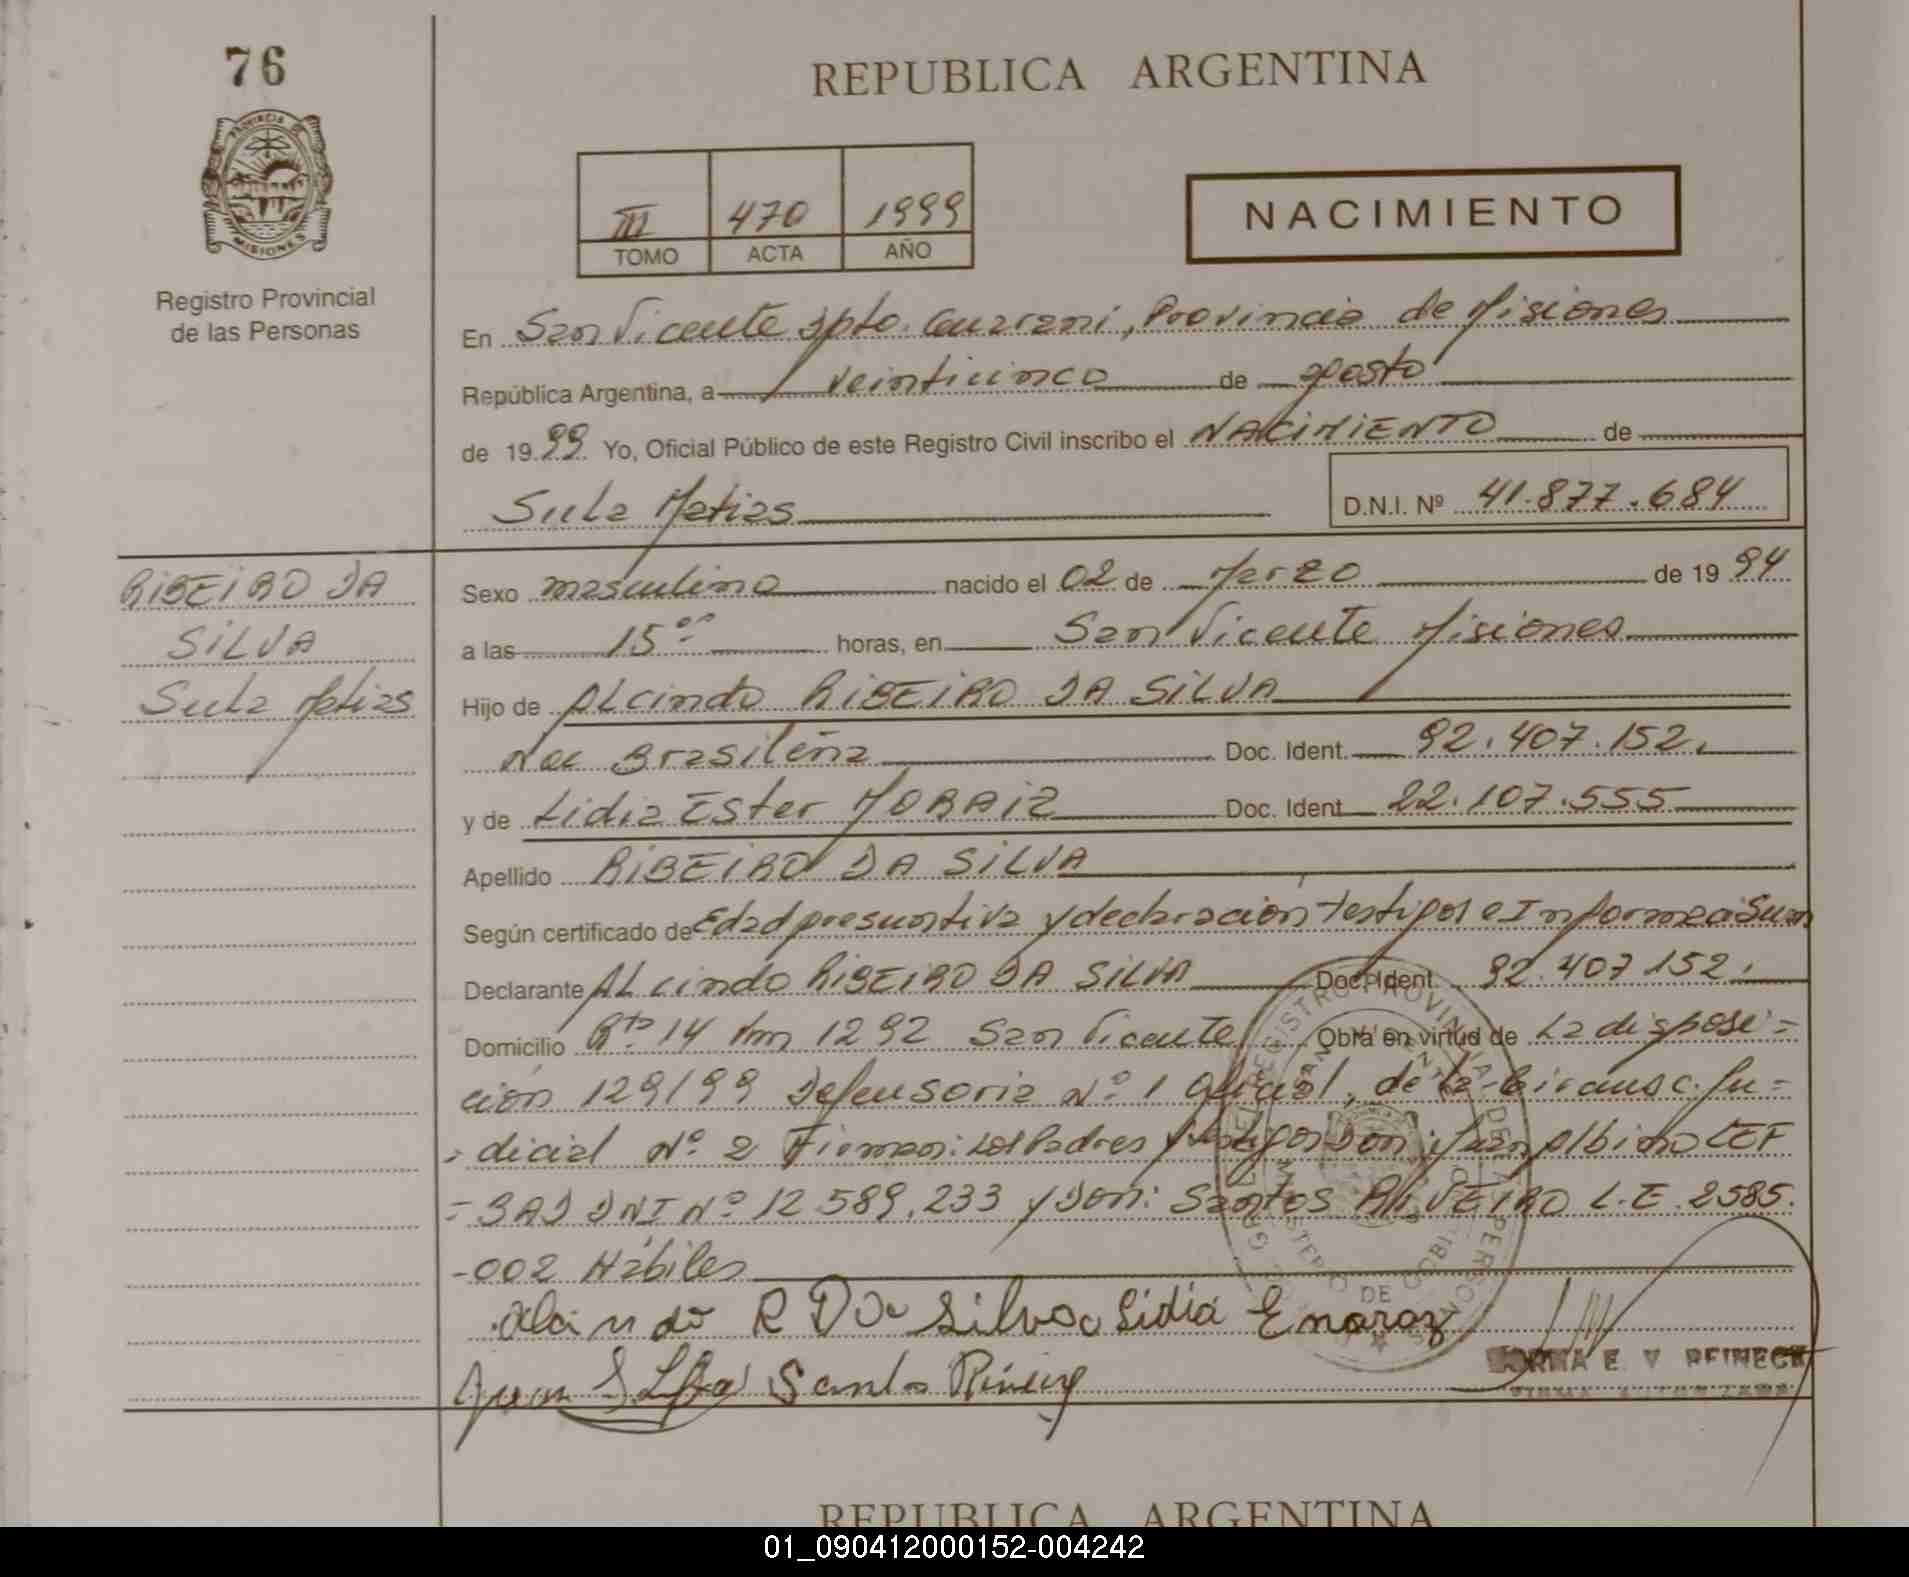 76
PROVINCIA DE
MISIONES
Registro Provincial
de las Personas
REPUBLICA ARGENTINA
III 470 1999
TOMO ACTA AÑO
NACIMIENTO
En San Vicente Dpto. Guarani, Provincia de Misiones
República Argentina, a veinticinco de agosto
de 1999 Yo, Oficial Público de este Registro Civil inscribo el NACIMIENTO de
Sula Matias D.N.I. Nº 41.877.684
RIBEIRO DA
SILVA
Sula Matias
Sexo masculino nacido el 02 de Marzo de 1994
a las 15ºº horas, en San Vicente Misiones
Hijo de ALcindo RIBEIRO DA SILVA
Nac Brasileña Doc. Ident. 92.407.152.
y de Lidia Ester MORAIZ Doc. Ident 22.107.555
Apellido RIBEIRO DA SILVA
Según certificado de Edad presuntiva y declaracion testigos e Informaci Sum
Declarante ALcindo RIBEIRO DA SILVA Doc. Ident. 92.407.152.
Domicilio Rta 14 km 1292 San Vicente Obra en virtud de La disposi=
ción 129/99 Defensoria Nº 1 Oficial, de la Circunsc. Ju=
=dicial Nº 2 Firman: Los Padres y testigos Don: Juan Albino LEF
=BAD DNI Nº 12.589.233 y Don: Santos RIVEIRO L.E. 2585.
-002 Hábiles
Alcindo R Da Silva Lidia E moraz
Juan Santos
NORMA E. V REINECK
REPUBLICA ARGENTINA
01_090412000152-004242